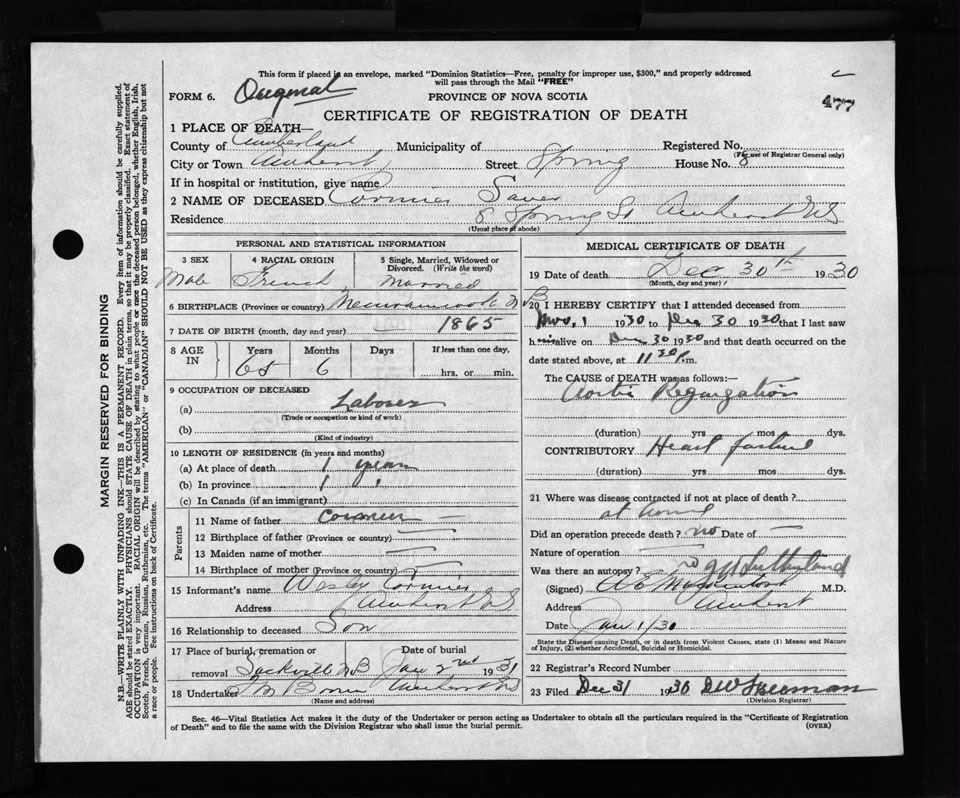 This form if placed in an envelope, marked "Dominion Statistics—Free, penalty for improper use, $300," and properly addressed
will pass through the Mail "FREE"
FORM 6. Original PROVINCE OF NOVA SCOTIA 477
CERTIFICATE OF REGISTRATION OF DEATH
1 PLACE OF DEATH—
County of Cumberland Municipality of Registered No.
(For use of Registrar General only)
City or Town Amherst Street Spring House No. 8
If in hospital or institution, give name
2 NAME OF DECEASED Cormier
Residence 8 Spring St Amherst NS
(Usual place of abode)
PERSONAL AND STATISTICAL INFORMATION
3 SEX 4 RACIAL ORIGIN 5 Single, Married, Widowed or
Divorced. (Write the word)
Male French Married
6 BIRTHPLACE (Province or country) Memramcook N B
7 DATE OF BIRTH (month, day and year) 1865
8 AGE IN Years Months Days If less than one day,
65 6 hrs. or min.
9 OCCUPATION OF DECEASED
(a) Laborer
(Trade or occupation or kind of work)
(b)
(Kind of industry)
10 LENGTH OF RESIDENCE (in years and months)
(a) At place of death 1 year
(b) In province 1 "
(c) In Canada (if an immigrant)
Parents
11 Name of father Cormier —
12 Birthplace of father (Province or country) —
13 Maiden name of mother —
14 Birthplace of mother (Province or country) —
15 Informant's name Wesley Cormier
Address Amherst NS
16 Relationship to deceased Son
17 Place of burial, cremation or Date of burial
removal Sackville NB Jan 2nd 1931
18 Undertaker Amherst NS
(Name and address)
MEDICAL CERTIFICATE OF DEATH
19 Date of death Dec 30th 1930
(Month, day and year)
20 I HEREBY CERTIFY that I attended deceased from
Nov. 1 1930 to Dec 30 1930 that I last saw
him alive on Dec 30 1930 and that death occurred on the
date stated above, at 11 30 P.m.
The CAUSE of DEATH was as follows:—
Aortic Regurgitation
(duration) yrs mos dys.
CONTRIBUTORY Heart failure
(duration) yrs mos dys.
21 Where was disease contracted if not at place of death?
at home
Did an operation precede death? no Date of —
Nature of operation —
Was there an autopsy? no Sutherland
(Signed) A E Mackintosh M.D.
Address Amherst
Date Jan 1/30
State the Disease causing Death, or in death from Violent Causes, state (1) Means and Nature
of Injury, (2) whether Accidental, Suicidal or Homicidal.
22 Registrar's Record Number
23 Filed Dec 31 1930 DW Freeman
(Division Registrar)
Sec. 46—Vital Statistics Act makes it the duty of the Undertaker or person acting as Undertaker to obtain all the particulars required in the "Certificate of Registration
of Death" and to file the same with the Division Registrar who shall issue the burial permit. (OVER)
MARGIN RESERVED FOR BINDING
N.B.—WRITE PLAINLY WITH UNFADING INK—THIS IS A PERMANENT RECORD. Every item of information should be carefully supplied.
AGE should be stated EXACTLY. PHYSICIANS should STATE CAUSE OF DEATH in plain terms, so that it may be properly classified. Exact statement of
OCCUPATION is very important. RACIAL ORIGIN will be described by stating to what people or race the deceased person belonged, whether English, Irish,
Scotch, French, German, Russian, Ruthenian, etc. The terms "AMERICAN" or "CANADIAN" SHOULD NOT BE USED as they express citizenship but not
a race or people. See instructions on back of Certificate.